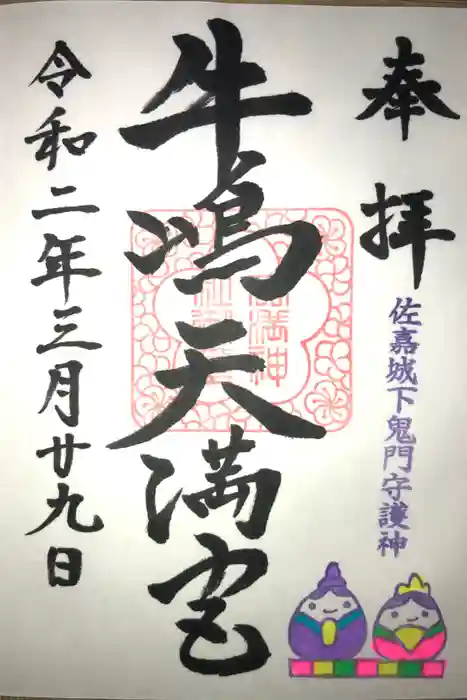 奉拝
佐嘉城下鬼門守護神
牛嶋天満宮
令和二年三月廿九日